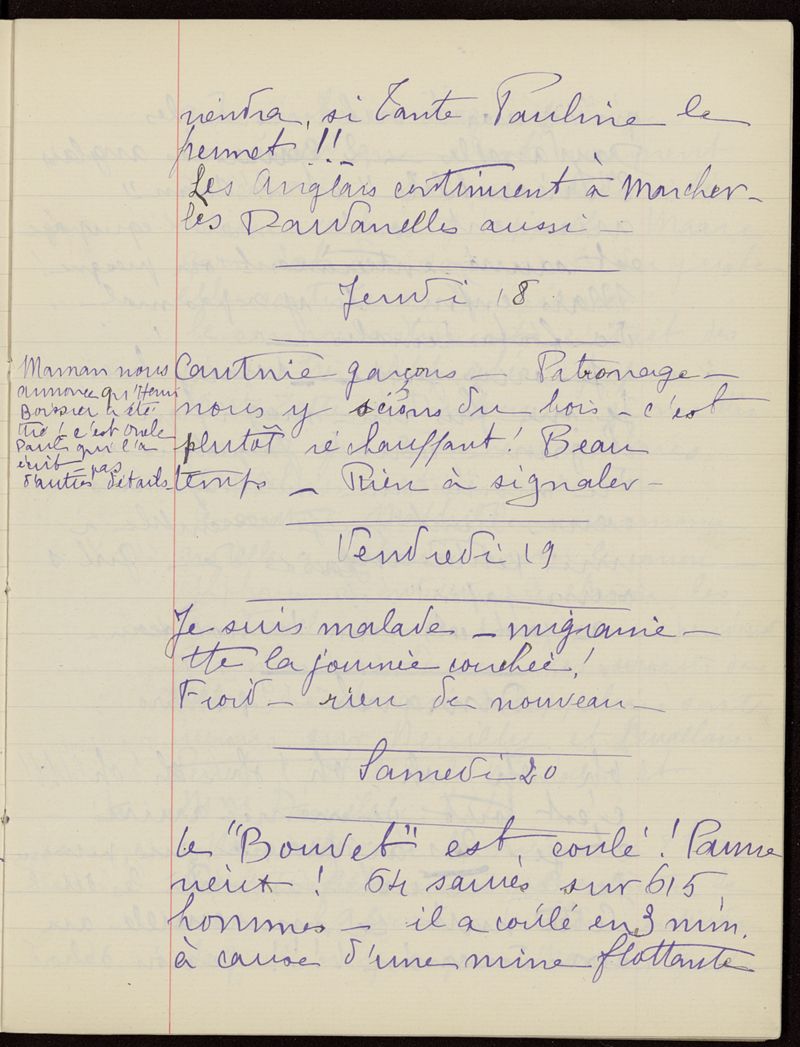 viendra, si Tante Pauline le
permet !!!
Les Anglais continuent à marcher -
les Dardanelles aussi -
Jeudi 18
Maman nous
annonce qu'Henri
Boissier a été
tué ! c'est oncle
Paul qui l'a
écrit - pas
d'autres détails
Cantine garçons - Patronage -
nous y scions du bois - c'est
plutôt réchauffant ! Beau
temps - Rien à signaler -
Vendredi 19
Je suis malade - migraine -
tte la journée couchée !
Froid - rien de nouveau -
Samedi 20
Le "Bouvet" est coulé ! Pauvre
vieux ! 64 sauvés sur 615
hommes - il a coulé en 3 min.
à cause d'une mine flottante